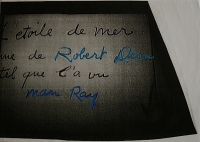 L'etoile de mer
me de Robert Desn
tel que l'a vu
man Ray